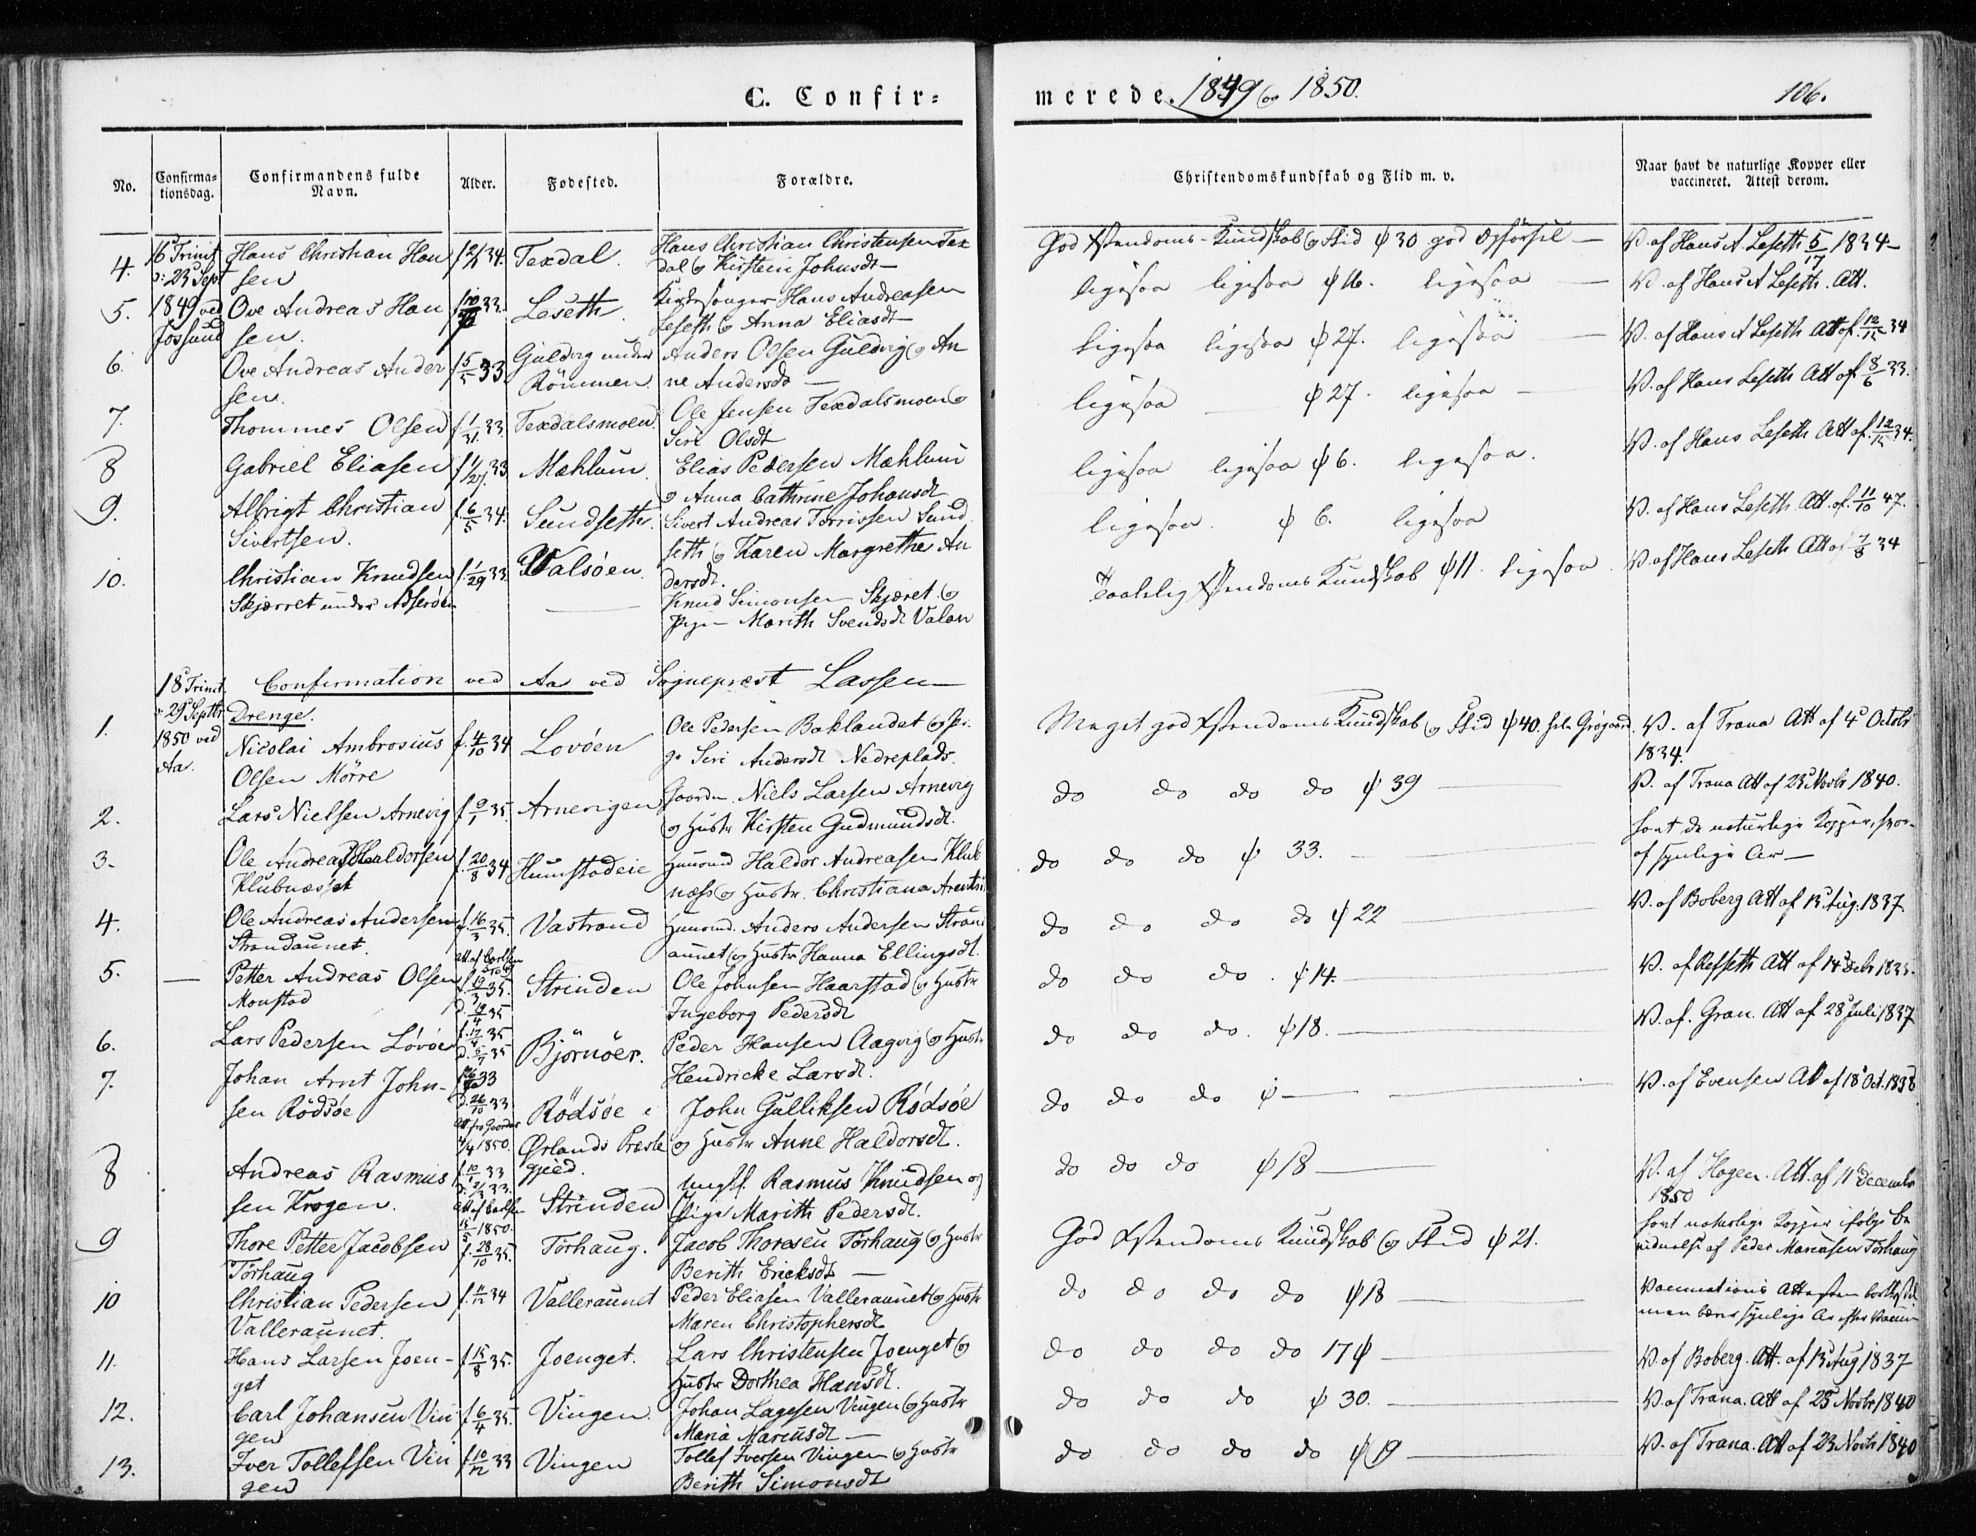 C. Confir=
merede. 1849 og 1850.
106.
No.
Confirma-
tionsdag.
Confirmandens fulde
Navn.
Alder.
Fødested.
Forældre.
Christendomskundskab og Flid m. v.
Naar havt de naturlige Kopper eller
vaccineret. Attest derom.
16 Trinit
23 Sept
1849 ved
Jøssund
4.
Hans Christian Han
sen
Texdal.
Hans Christian Christensen Tex
dal og Kirsten Johnsdt
God Xstendoms-Kundskab og Flid ϕ 30 god Opførsel
V. af Hans A. Leseth 5/17 1834
5.
Ove Andreas Han
sen.
Leseth
Kirkesanger Hans Andreasen
Leseth og Anna Eliasdt
ligesaa ligesaa ϕ 16. ligesaa
V. af Hans A Leseth. Att.
6.
Ove Andreas Ander
sen.
f 5/5 33
Guldvig under
Römmen
Anders Olsen Guldvig og An
ne Andersdt
ligesaa ligesaa ϕ 27. ligesaa
V. af Hans A Leseth Att of. 12/15 34
7.
Thommes Olsen
f. 1/31 33
Texdalsmoen
Ole Jensen Texdalsmoen og
Siri Olsdt
ligesaa ϕ 27. ligesaa
V. af Hans Leseth Att of 8/6 33.
8
Gabriel Eliasen
Mæhlum
Elias Pedersen Mæhlum
og Anna Cathrine Johansdt
ligesaa ligesaa ϕ 6. ligesaa.
V. af Hans Leseth Att of. 12/15 34.
9.
Albrigt Christian
Sivertsen.
f. 6/5 34.
Sundseth.
Sivert Andreas Torrissen Sund
seth og Karen Margrethe An
dersdt.
ligesaa. ϕ 6. ligesaa
V. af Hans Leseth Att. of. 11/10 47.
10.
Christian Knudsen
Skjærret under Adserøen
f. 1/29 33
Valsöen
Knud Simonsen Skjæret og
Pige Marith Svendsdt Valøn
Taalelig Xstendoms Kundskab ϕ 11. ligesaa.
V. af Hans Leseth Att of 7/8 34
Confirmation ved Aa ved Sognepræst Lassen
18 Trinit.
29 Septbr
1850 ved
Aa.
Drenge.
1.
Nicolai Ambrosius
Olsen Mörre
f. 4/10 34
Lovöen
Ole Pedersen Baklandet og Pi
ge Siri Andersdt Nedreplads.
Meget god Xstendoms Kundskab og Flid ϕ 40.
V. af Trana Att af 4 Octobr
1834.
2.
Lars Nielsen Arnevig
f. 9/1 35.
Arnevigen
Gaardm. Niels Larsen Arnevig
og Hustr Kirsten Gudmundsdt.
do do do do ϕ 39
V. af Trana Att af 23 Novbr 1840.
3.
Ole Andreas Haldorsen
Klubnæsset
f. 20/8 34
Humstadeie
Huusmd Haldor Andreasen Klub
næss og Hustr. Christiana Arentsd
do do do ϕ 33.
havt de naturlige Kopper, hvor
af synlige Ar
4.
Ole Andreas Andersen
Strandaunet.
f. 16/3 35.
Vastrand
Huusmd. Anders Andersen Strand
aunet og Hustr Hanna Ellingsdt.
do do do do ϕ 22
V. af Boberg Att af 13 Aug. 1837.
5.
Petter Andreas Olsen
Monstad
f. 19/3 35.
Strinden
Ole Johnsen Haarstad og Hustr
Ingeborg Pedersdt
do do do. ϕ 14.
V. af Resseth Att af 14 Decbr 1835.
6.
Lars Pedersen Lövöe
Björnöer.
Peder Hansen Aagvig og Hustr
Hendricke Larsdt.
do do do. ϕ 18.
V. af. Gran. Att af 28 Juli 1837
7.
Johan Arnt John-
sen Rödsöe
d. 26/10 33
Rödsöe i
Ørlands Præste
gjeld.
John Gulliksen Rødsöe
og Hustr Anne Haldorsdt.
do do do ϕ
V. af Evensen Att af 18 Oct. 1838
8
Andreas Rasmus
sen Krogen.
f. 10/1 33
Strinden
Ungkl. Rasmus Knudsen og
Pige Marith Pedersdt.
do do do ϕ 18
V. af Hagen. Att. af 11 December
1850
9
Thore Petter Jacobsen
Törhaug
f. 28/10 35.
Törhaug.
Jacob Thoresen Törhaug og Hustr
Berith Ericksdt
God Xstendoms Kundskab og Flid ϕ 21.
havt naturlige Kopper ifölge Be
vidnelse af Peder Mariusen Törhaug
10
Christian Pedersen
Valleraunet.
f. 11/12 34
Valleraunet
Peder Eliasen Valleraunet og Hustr
Maren Christophersdt
do do do do ϕ 18
Vaccinations Attesten
men bær synlige Ar efter Vaccin
11.
Hans Larsen Joen-
get
f. 15/8 35.
Joenget.
Lars Christensen Joenget og
Hustr Dorthea Hansdt.
do do do do 17 ϕ
V. af Boberg. Att. af 13 Aug 1837
12.
Carl Johansen Vin
gen
f. 6/4 35.
Vingen.
Johan Lagesen Vingen og Hustr
Maria Marcusdt
do do do ϕ 30.
V. af Trana. Att af 23 Novbr 1840
13.
Iver Tollefsen Vin
gen
f. 10/12 33
Vingen
Tollef Iversen Vingen og Hustr
Berith Simonsdt
do do do do ϕ 19
V. af Trana. Att af 23 Novbr 1840